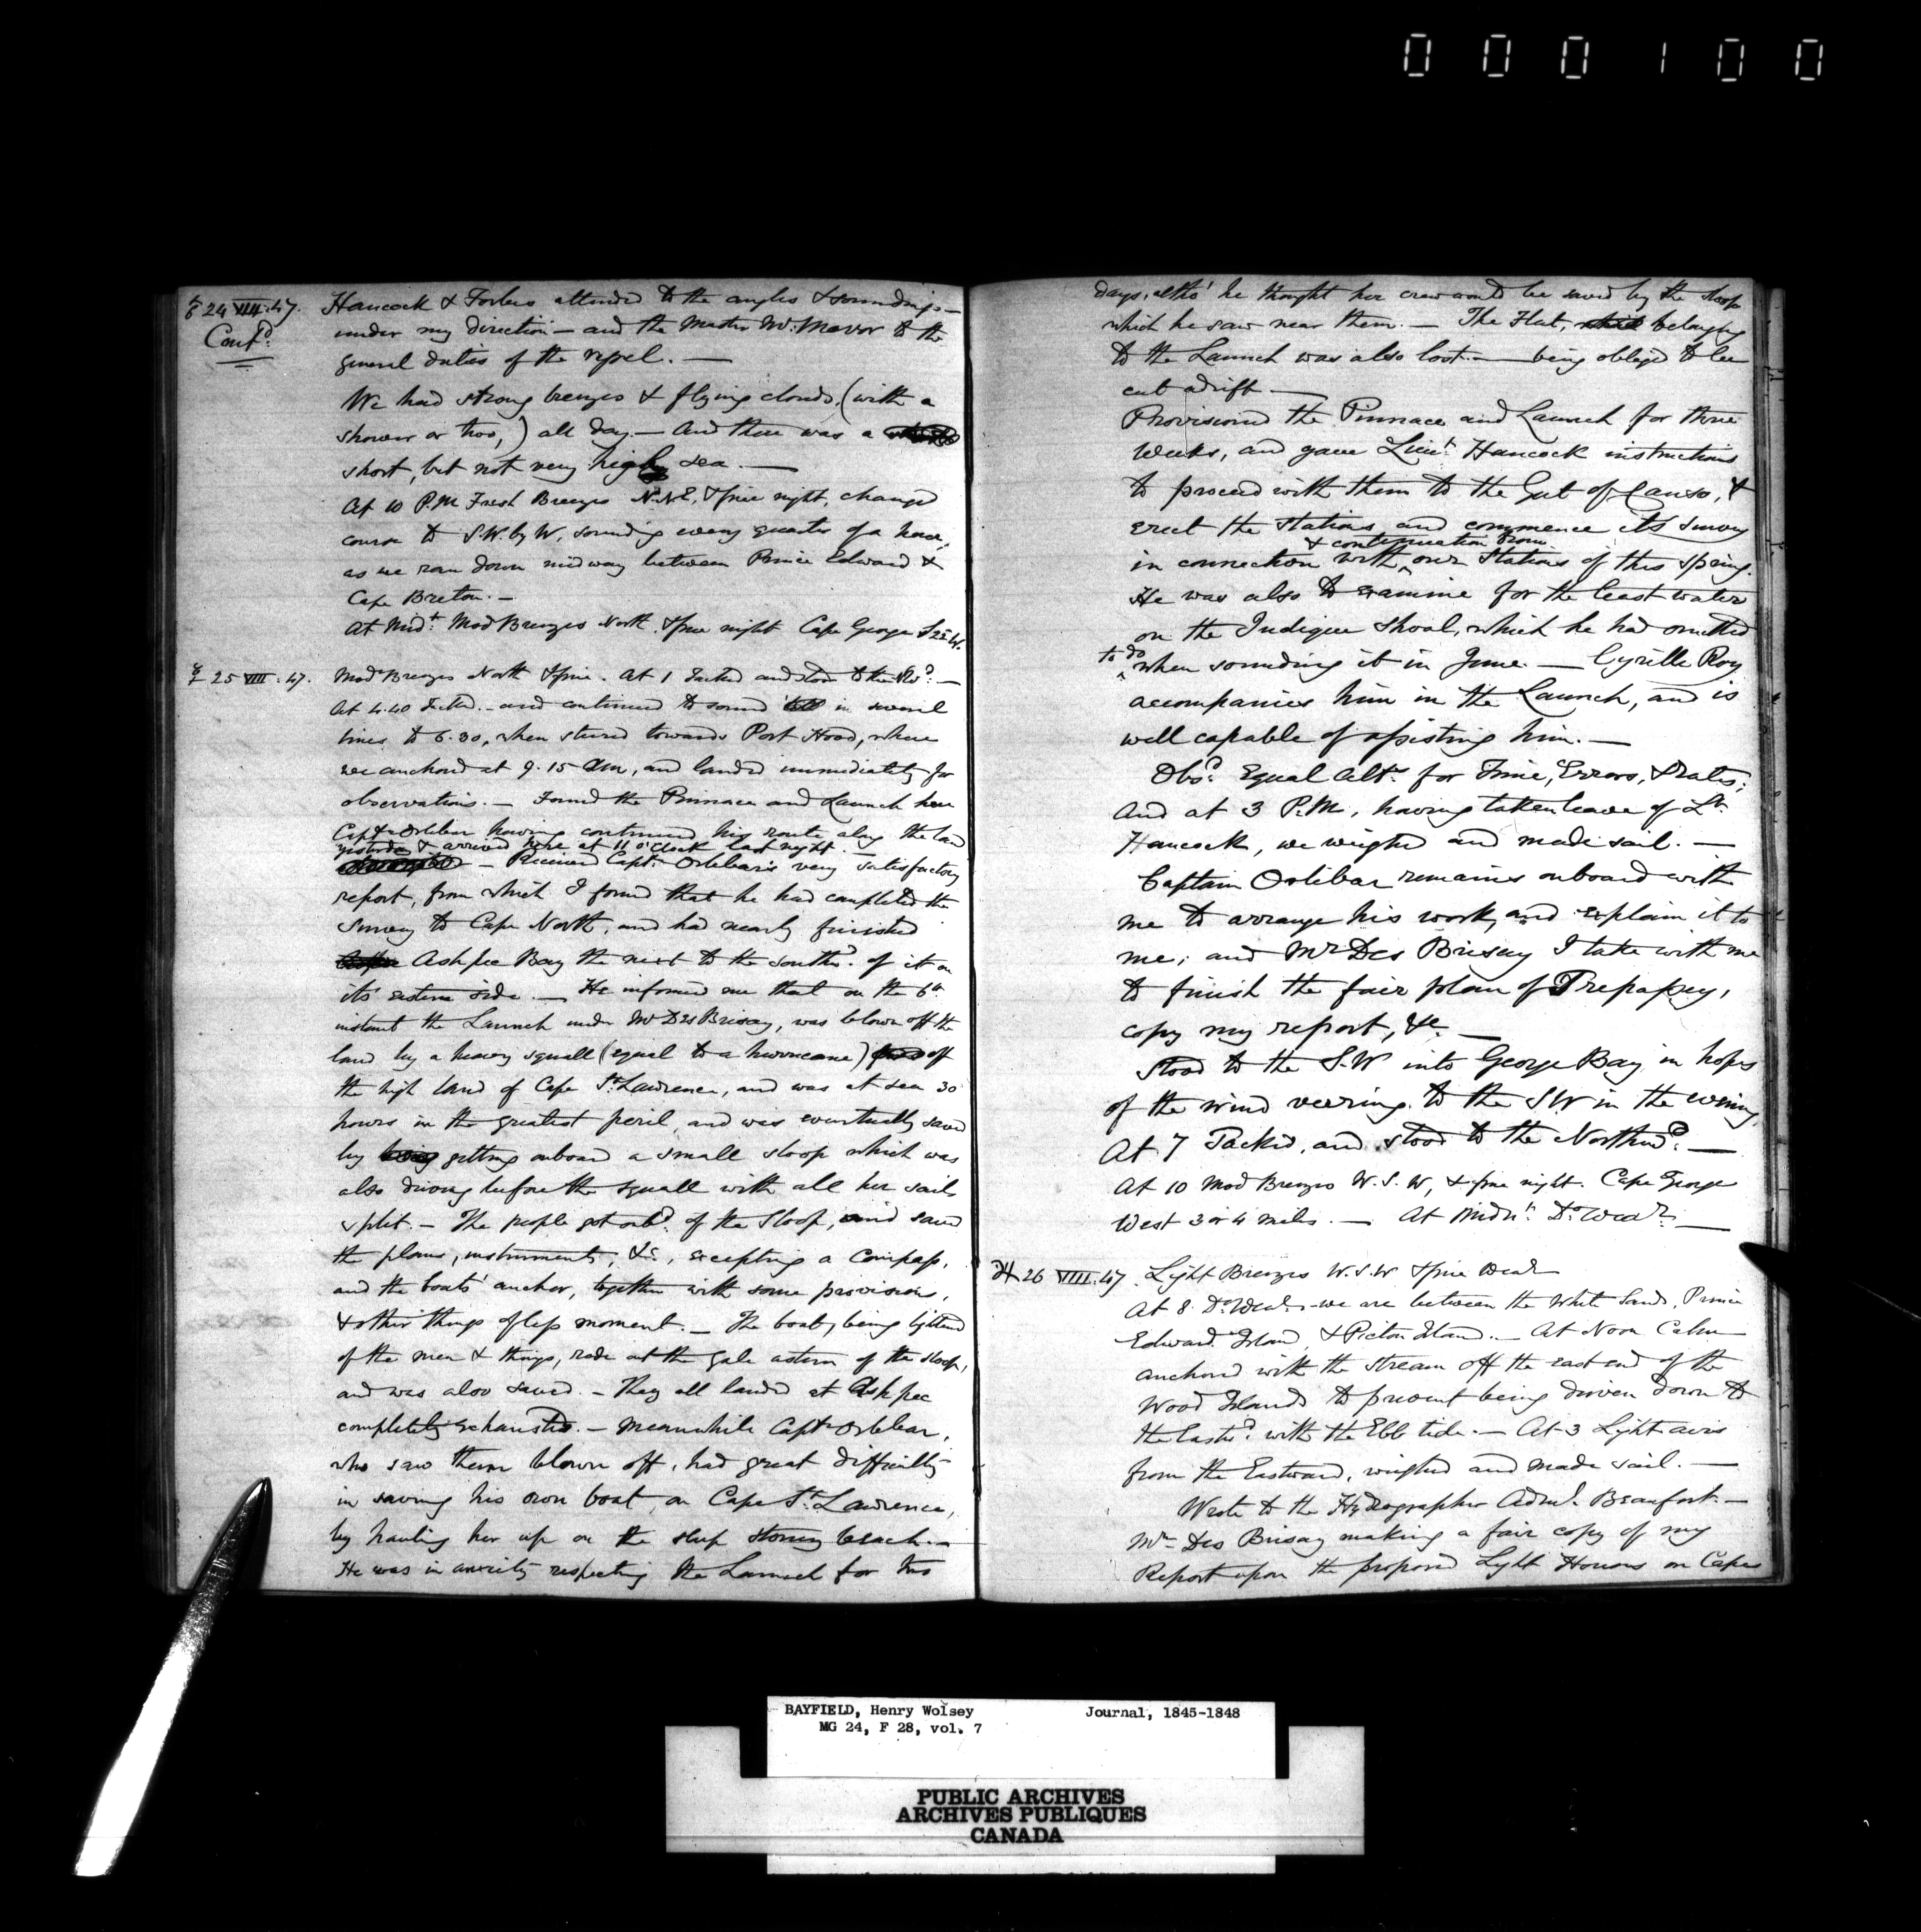 000100
♂ 24 VIII. 47. Hancock & Forbes attended to the angles & soundings—
Cont.d under my direction — and the Master Mr. Mavor to the
general duties of the vessel. —
We had strong breezes & flying clouds, (with a
shower or two,) all day. — And there was a
short, but not very high sea. —
At 10 P.M Fresh Breezes N.N.E, & fine night, changed
course to S.W. by W, sounding every quarter of a hour,
as we ran down midway between Prince Edward &
Cape Breton. —
At Midt. Mod Breezes North & fine night Cape George S 25 W.
☿ 25 VIII. 47. Mod Breezes North & fine. At 1 Tacked and stood to the —
At 4.40 Tacked. — and continued to sound in several
lines to 6.30, when steered towards Port Hood, where
we anchored at 9.15 AM, and landed immediately for
observations. — Found the Pinnace and Launch here
Capt Orlebar having continued his route along the land
yesterday & arrived here at 11 o'clock last night. —
— Received Capt. Orlebar's very satisfactory
report, from which I found that he had completed the
Survey to Cape North, and had nearly finished
Ashpee Bay the next to the southd. of it on
its eastern side. — He informed me that on the 6th
instant the Launch under Mr Des Brisay, was blown off the
land by a heavy squall (equal to a hurricane) off
the high land of Cape St. Lawrence, and was at sea 30
hours in the greatest peril, and was eventually saved
by being getting onboard a small sloop which was
also driving before the squall with all her sails
split. — The people got onbd. of the Sloop, and saved
the plans, instruments, &c., excepting a Compass,
and the boats' anchor, together with some provisions,
& other things of less moment. — The boat, being lightened
of the men & things, rode out the gale astern of the sloop,
and was also saved. — They all landed at Ashpee
completely exhausted. — Meanwhile Capt Orlebar,
who saw them blown off, had great difficulty
in saving his own boat, on Cape St. Lawrence,
by hauling her up on the steep stoney beach. —
He was in anxiety respecting the Launch for two
days, altho' he thought her crew would be saved by the sloop
which he saw near them. — The Flat, which belonging
to the Launch was also lost. — being obliged to be
cut adrift —
Provisioned the Pinnace and Launch for three
Weeks, and gave Lieut. Hancock instructions
to proceed with them to the Gut of Canso, &
erect the Stations, and commence its survey
& continuation from
in connection with our Stations of this Spring.
He was also to examine for the least water
on the Indigue Shoal, which he had omitted
to do when sounding it in June. — Cyrille Roy
accompanies him in the Launch, and is
well capable of assisting him. —
Obsd. Equal Alts. for Time, Errors, & Rates;
And at 3 P.M, having taken leave of Lt.
Hancock, we weighed and made sail. —
Captain Orlebar remains onboard with
me to arrange his work, and explain it to
me; and Mr Des Brisay I take with me
to finish the fair plan of Trepassey,
copy my report, &c. —
Stood to the S.W into George Bay in hopes
of the wind veering to the SW in the evening
At 7 Tacked, and stood to the Northwd. —
At 10 Mod Breezes W.S.W, & fine night. Cape George
West 3 or 4 miles. — At Midnt. Do. Wear. —
♃ 26 VIII. 47. Light Breezes W.S.W & fine Wear
At 8 Do. Wear. — we are between the White Sands, Prince
Edward Island, & Pictou Island. — At Noon Calm
anchored with the stream off the east end of the
Wood Islands to prevent being driven down to
the Eastd. with the Ebb tide. — At 3 Light airs
from the Eastward, weighed and made sail. —
Wrote to the Hydrographer Adml. Beaufort. —
Mr Des Brisay making a fair copy of my
Report upon the proposed Light Houses on Cape
BAYFIELD, Henry Wolsey Journal, 1845-1848
MG 24, F 28, vol. 7
PUBLIC ARCHIVES
ARCHIVES PUBLIQUES
CANADA